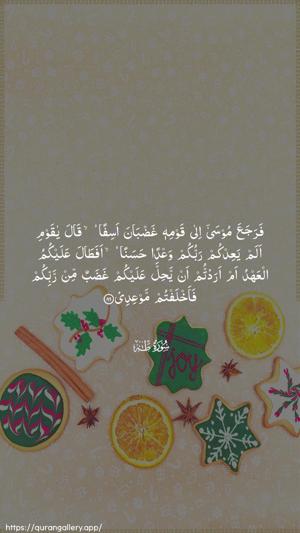 فَرَجَعَ مُوۡسٰٓى اِلٰى قَوۡمِهٖ غَضۡبَانَ اَسِفًا ۚ قَالَ يٰقَوۡمِ
اَلَمۡ يَعِدۡكُمۡ رَبُّكُمۡ وَعۡدًا حَسَنًا ؕ اَفَطَالَ عَلَيۡكُمُ
الۡعَهۡدُ اَمۡ اَرَدْتُّمۡ اَنۡ يَّحِلَّ عَلَيۡكُمۡ غَضَبٌ مِّنۡ رَّبِّكُمۡ
فَاَخۡلَفۡتُمۡ مَّوۡعِدِىۡ‏ ﴿۸۶﴾
سُوۡرَةُ طٰهٰ
joy
https://qurangallery.app/